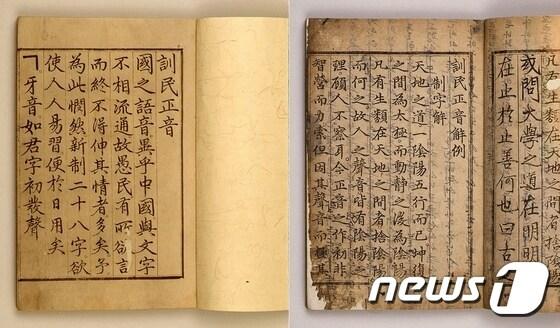 訓民正音
國之語音異乎中國與文字
不相流通故愚民有所欲言
而終不得伸其情者多矣予
為此憫然新制二十八字欲
使人人易習便於日用矣
ㄱ牙音如君字初發聲
或問大學之道在明明
在止於止善何也曰古
訓民正音解例
制字解
天地之道一陰陽五行而已坤復
之間為太極而動静之後為陰陽
凡有生類在天地之間者捨陰陽
而何之故人之聲音皆有陰陽之
理顧人不察耳今正音之作初非
智營而力索但因其聲音而極其
news1